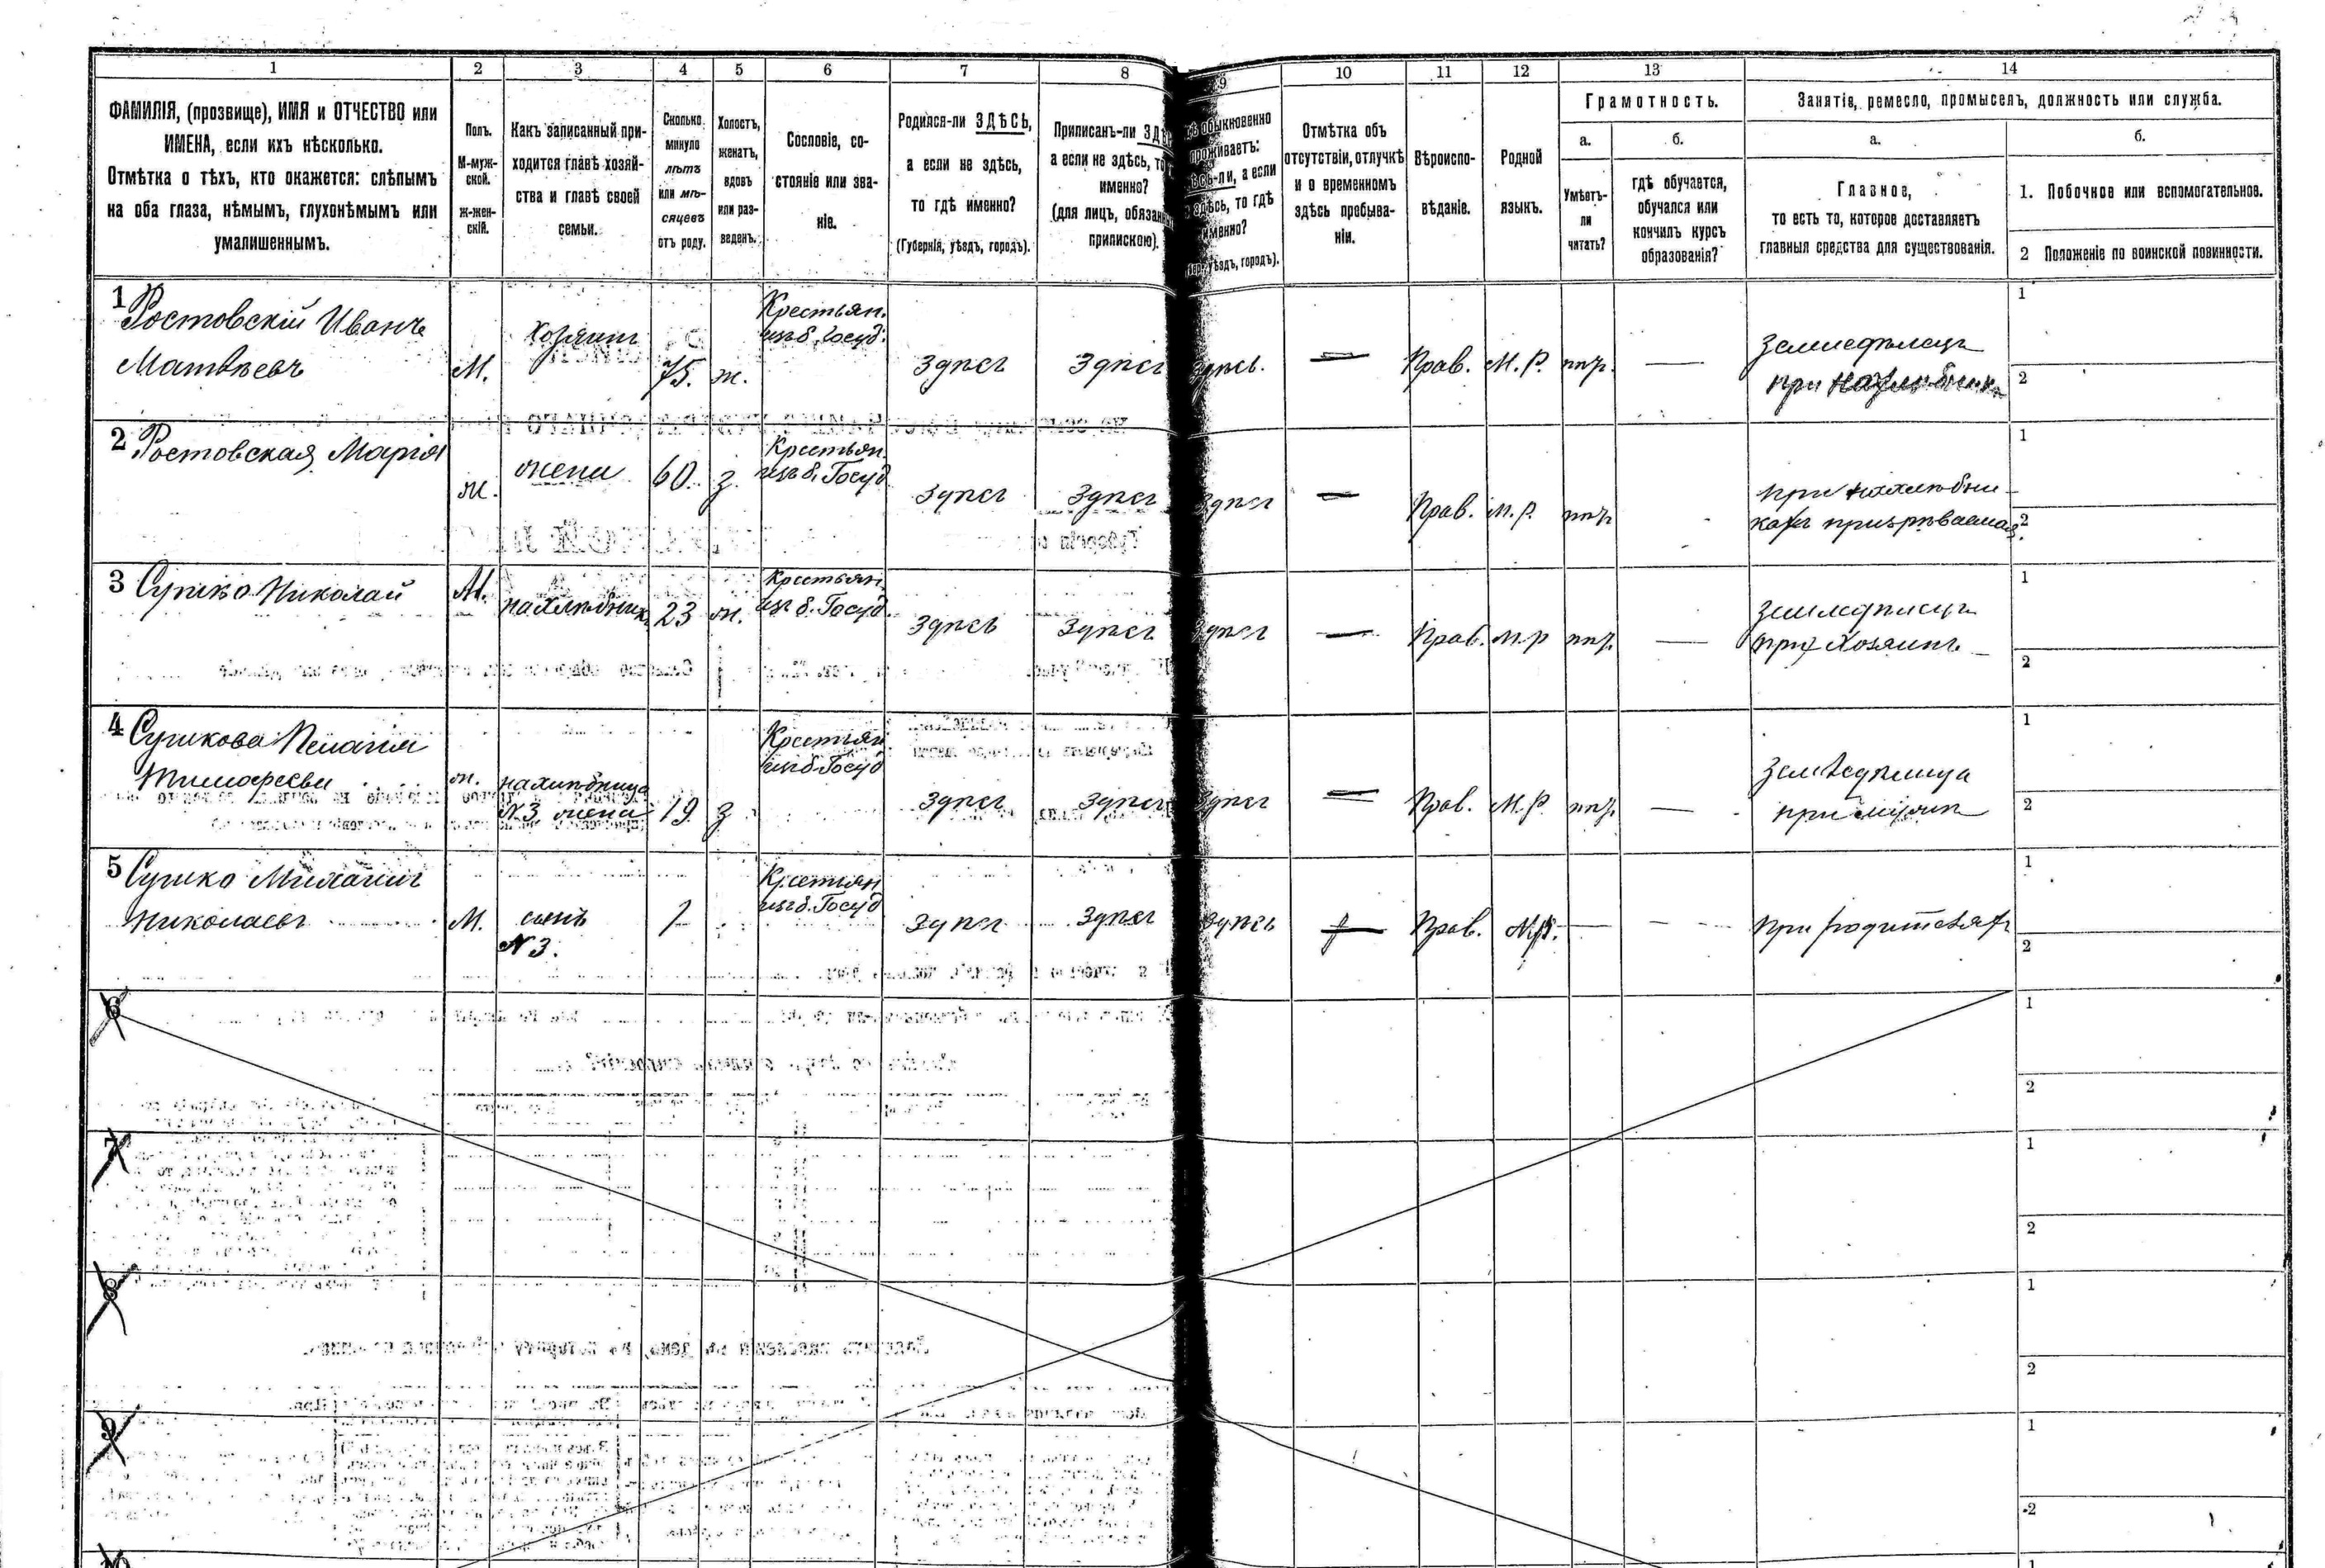 1 2 3 4 5 6 7 8 9 10 11 12 13 14
ФАМИЛІЯ, (прозвище), ИМЯ и ОТЧЕСТВО или
ИМЕНА, если ихъ нѣсколько.
Отмѣтка о тѣхъ, кто окажется: слѣпымъ
на оба глаза, нѣмымъ, глухонѣмымъ или
умалишеннымъ.
Полъ.
М-муж-
ской.
ж-жен-
скій.
Какъ записанный при-
ходится главѣ хозяй-
ства и главѣ своей
семьи.
Сколько
минуло
лѣтъ
или мѣ-
сяцевъ
отъ роду.
Холостъ,
женатъ,
вдовъ
или раз-
веденъ.
Сословіе, со-
стояніе или зва-
ніе.
Родился-ли ЗДѢСЬ,
а если не здѣсь,
то гдѣ именно?
(Губернія, уѣздъ, городъ).
Приписанъ-ли
а если не здѣсь,
именно?
(для лицъ,
припискою).
обыкновенно
проживаетъ:
а если
здѣсь, то гдѣ
именно?
уѣздъ, городъ).
Отмѣтка объ
отсутствіи, отлучкѣ
и о временномъ
здѣсь пребыва-
ніи.
Вѣроиспо-
вѣданіе.
Родной
языкъ.
Грамотность.
а.
Умѣетъ-
ли
читать?
б.
гдѣ обучается,
обучался или
кончилъ курсъ
образованія?
Занятіе, ремесло, промыселъ, должность или служба.
а.
Главное,
то есть то, которое доставляетъ
главныя средства для существованія.
б.
1. Побочное или вспомогательное.
2 Положеніе по воинской повинности.
1 Ростовскій Иванъ
Матвѣевъ
М.
Хозяинъ
75.
ж.
Крестьян.
изъ б. Госуд.
Здѣсь
Здѣсь
Здѣсь.
—
Прав.
М. Р.
нѣт.
—
Земледѣлецъ
при
1
2
2 Ростовская Марія
ж.
жена
60.
з.
Крестьян.
изъ б. Госуд
Здѣсь
Здѣсь
Здѣсь
—
Прав.
М. Р.
нѣт
при нахлѣбни-
кахъ призрѣваемая
1
2
3 Сушко Николай
М.
нахлѣбникъ
23
ж.
Крестьян.
изъ б. Госуд.
Здѣсь
Здѣсь
Здѣсь
—
Прав.
М. Р
нѣт.
—
Земледѣлецъ
при Хозяинѣ
1
2
4 Сушкова Пелагія
Тимофеева
ж.
нахлѣбница
N 3 жена
19.
з
Крестьян
изъ б. Госуд
Здѣсь
Здѣсь
Здѣсь
—
Прав.
М. Р
нѣт.
—
Земледѣлица
при мужѣ
1
2
5 Сушко Михаилъ
Николаевъ
М.
сынъ
N 3.
1
Крестьян
изъ б. Госуд
Здѣсь
Здѣсь
Здѣсь
—
Прав.
М. Р.
—
—
При родителяхъ
1
2
6
1
2
7
1
2
8
1
2
9
1
2
10
1